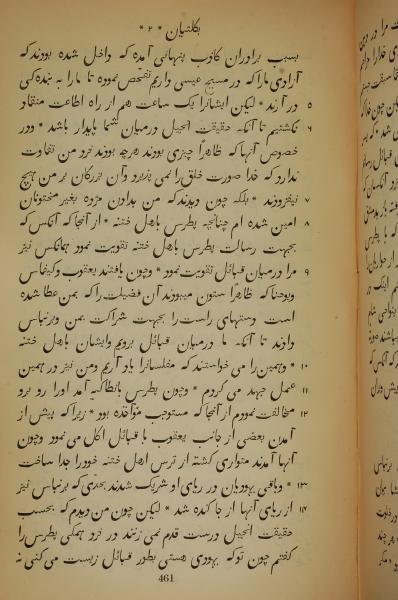 بگلتیان * ۲ *
بسبب برادران کاذب پنهانی آمده که داخل شده بودند که
آزادی ما را که در مسیح عیسی داریم تفحّص نموده تا ما را به بندگی
۵ در آرند * لیکن ایشانرا یک ساعت هم از راه اطاعت منقاد
۶ نگشتیم تا آنکه حقیقت انجیل درمیان شما پایدار باشد * ودر
خصوص آنها که ظاهرًا چیزی بودند هرچه بودند نزد من تفاوت
ندارد که خدا صورت خلق را نمی پذیرد وآن بزرگان بر من هیچ
۷ نیفزودند * بلکه چون دیدند که من بدادن مژده بغیر مختونان
۸ امین شده ام چنانچه پطرس باهل ختنه * از آنجا که آنکس که
بجهت رسالت پطرس باهل ختنه تقویت نمود همانکس نیز
۹ مرا درمیان قبائل تقویت نمود * وچون یافتند یعقوب وکیفاس
ویوحنا که ظاهرًا ستون میبودند آن فضیلت را که بمن عطا شده
است دستهای راست را بجهت شراکت بمن وبرنباس
دادند تا آنکه ما درمیان قبائل برویم وایشان باهل ختنه
۱۰ * وهمین را می خواستند که مفلسانرا یاد آریم ومن نیز در همین
۱۱ عمل جهد می کردم * وچون پطرس بانطاکیه آمد اورا رو برو
۱۲ مخالفت نمودم از آنجا که مستوجب مؤاخذه بود * زیرا که پیش از
آمدن بعضی از جانب یعقوب با قبائل اکل می نمود وچون
آنها آمدند متواری گشته از ترس اهل ختنه خودرا جدا ساخت
۱۳ * وباقی یهودیان در ریای او شریک شدند بحدّی که برنباس نیز
۱۴ از ریای آنها از جا کنده شد * لیکن چون من دیدم که بحسب
حقیقت انجیل درست قدم نمی زنند در نزد همکی پطرس را
گفتم چون تو که یهودی هستی بطور قبائل زیست می کنی نه
461